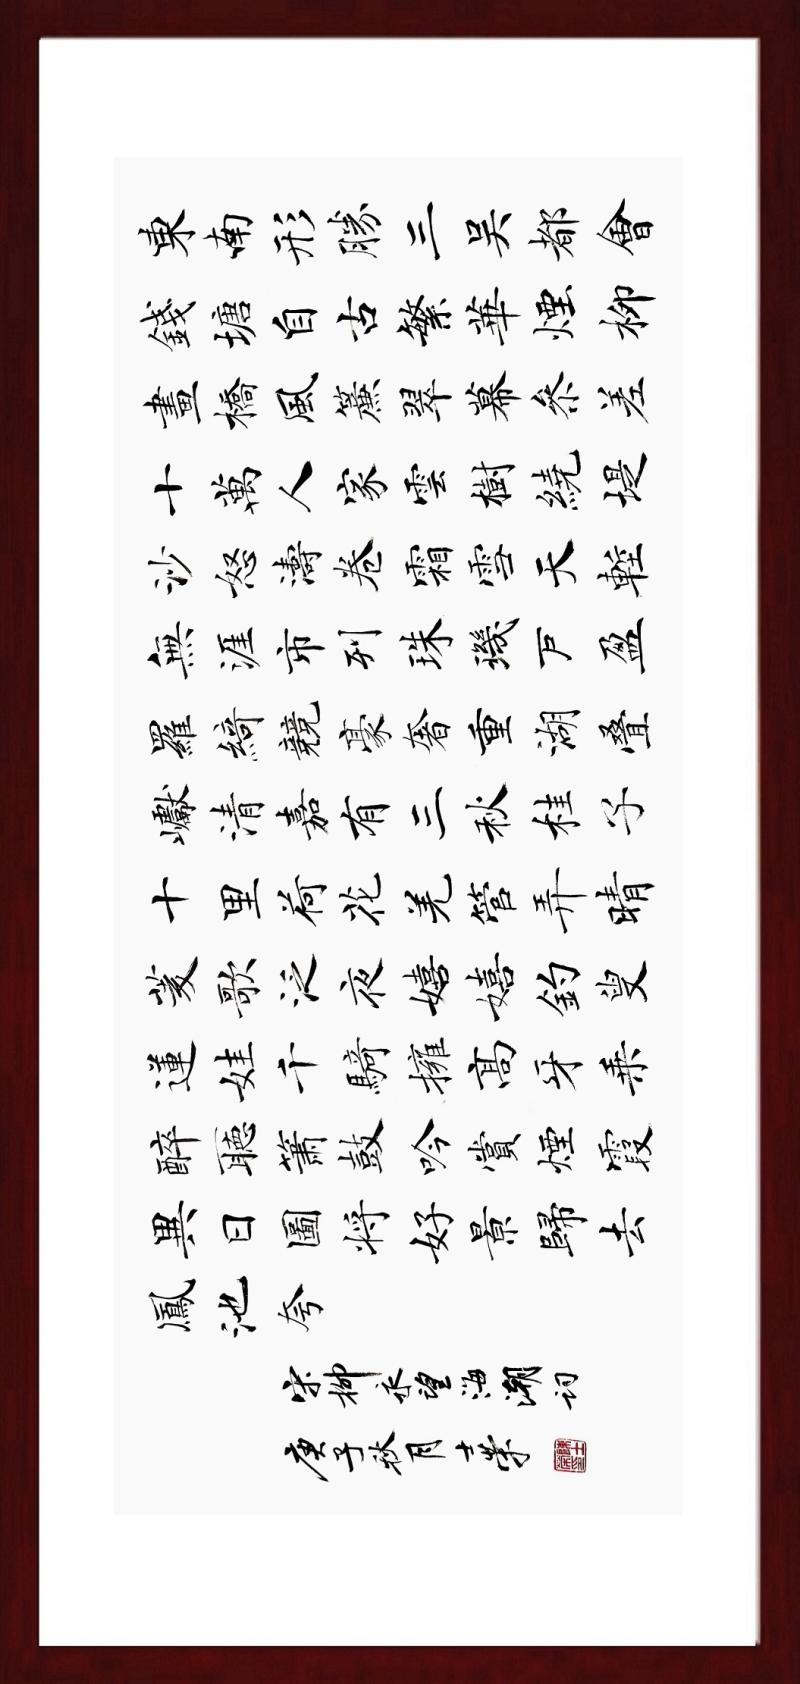 東南形勝三吳都會
錢塘自古繁華煙柳
畫橋風簾翠幕參差
十萬人家雲樹繞堤
沙怒濤卷霜雪天塹
無涯市列珠璣戶盈
羅綺競豪奢重湖疊
巘清嘉有三秋桂子
十里荷花羌管弄晴
菱歌泛夜嬉嬉釣叟
蓮娃千騎擁高牙乘
醉聽簫鼓吟賞煙霞
異日圖將好景歸去
鳳池夸
宋柳永望海潮詞
庚子秋月士榮